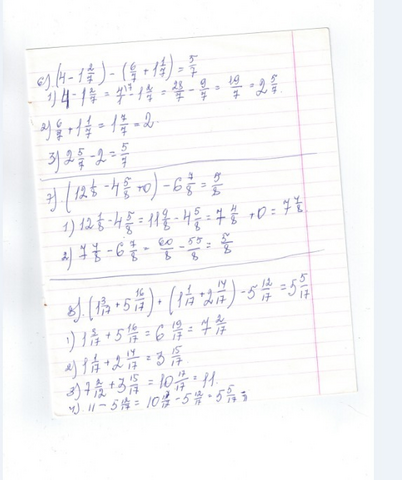 6). (4 - 1 2/7) - (6/7 + 1 1/7) = 5/7
1) 4 - 1 2/7 = 4/1 - 1 2/7 = 28/7 - 9/7 = 19/7 = 2 5/7.
2) 6/7 + 1 1/7 = 1 7/7 = 2.
3) 2 5/7 - 2 = 5/7
7). (12 1/8 - 4 5/8 + 0) - 6 7/8 = 5/8
1) 12 1/8 - 4 5/8 = 11 9/8 - 4 5/8 = 7 4/8 + 0 = 7 4/8
2) 7 4/8 - 6 7/8 = 60/8 - 55/8 = 5/8
8). (1 3/17 + 5 16/17) + (1 1/17 + 2 14/17) - 5 12/17 = 5 5/17
1) 1 3/17 + 5 16/17 = 6 19/17 = 7 2/17
2) 1 1/17 + 2 14/17 = 3 15/17
3) 7 2/17 + 3 15/17 = 10 17/17 = 11.
4) 11 - 5 12/17 = 10 17/17 - 5 12/17 = 5 5/17